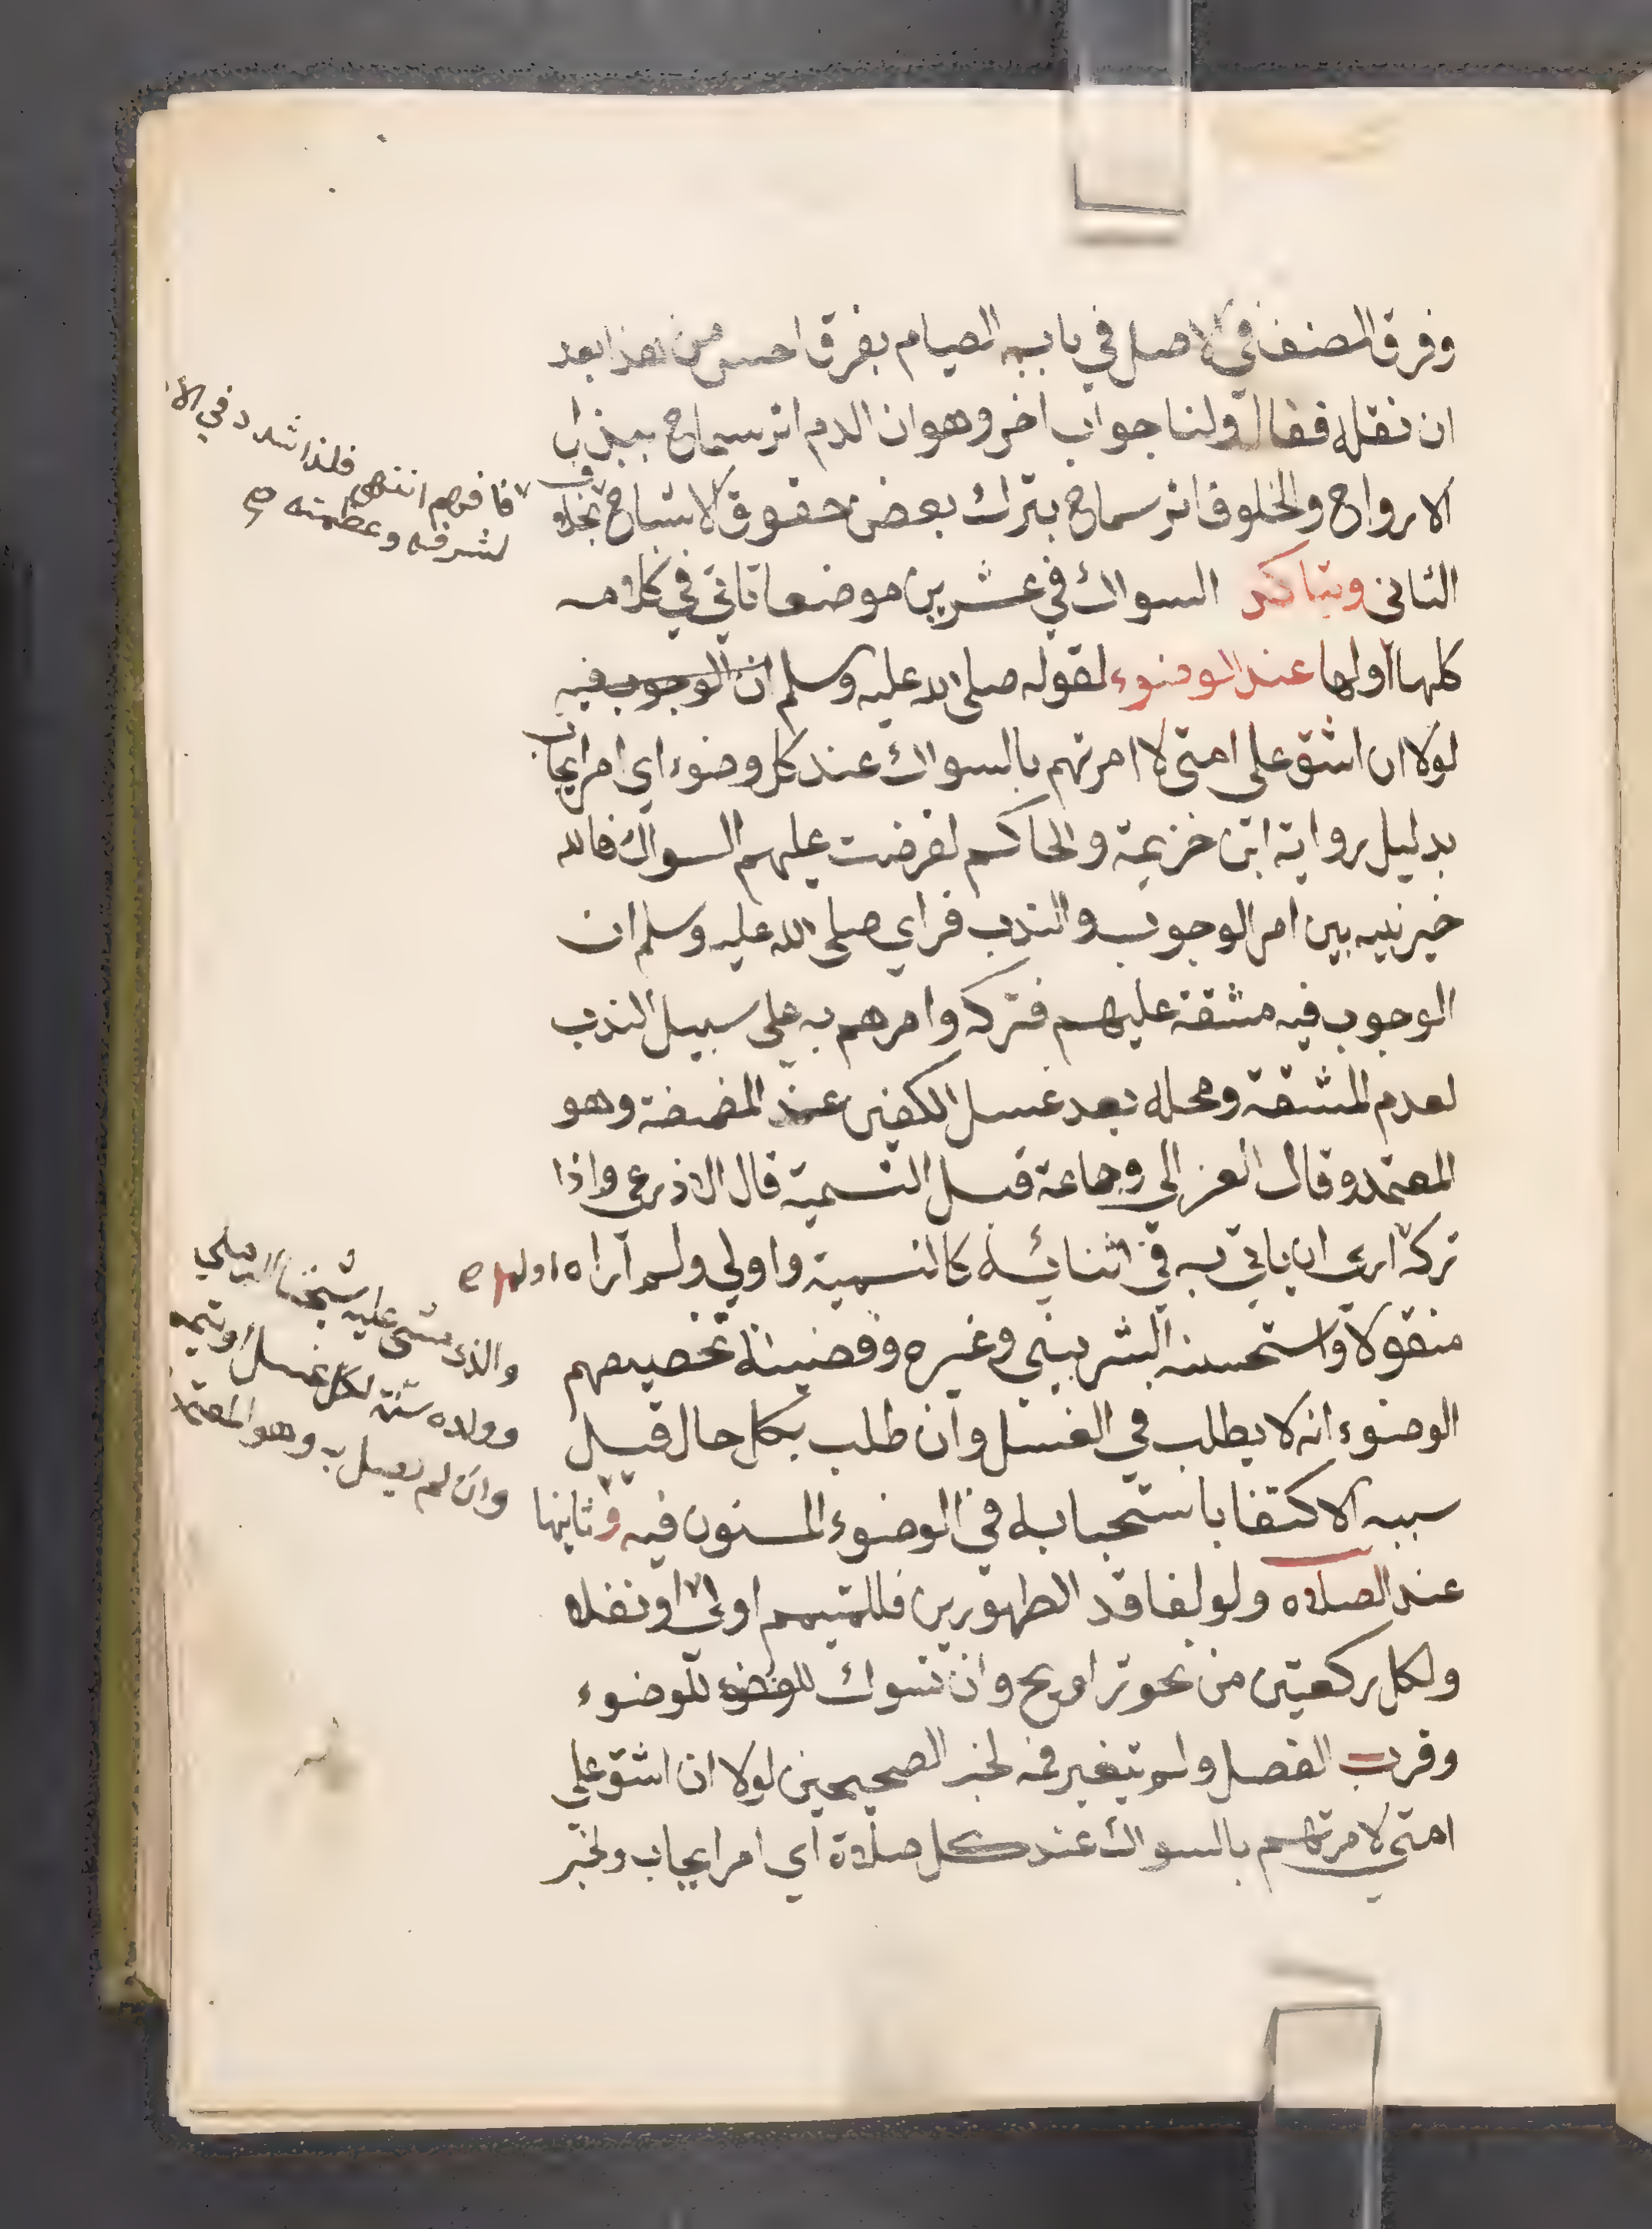 وفرق المصنف في الاصل في باب الصيام بفرق احسن من هذا بعد
ان نقله فقال ولنا جواب اخر وهو ان الدم اثر سماح ببذل
الارواح والخلوف اثر سماح بترك بعض حقوق الاشباح بخلاف
الثانى ويتاكد السواك في عشرين موضعا تاتي في كلامه
كلها اولها عند الوضوء لقوله صلى الله عليه وسلم ان الوجوب فيه
لولا ان اشق على امتى لا امرتهم بالسواك عند كل وضوء اي امر ايجاب
بدليل رواية ابن خزيمة والحاكم لفرضت عليهم السواك فالله
خير نبيه بين امر الوجوب والندب فراي صلى الله عليه وسلم ان
الوجوب فيه مشقة عليهم فتركه وامرهم به على سبيل الندب
لعدم المشقة ومحله بعد غسل الكفين عند المضمضة وهو
المعتمد وقال الغزالي وجماعة قبل التسمية قال الاذرعى واذا
تركه ارى ان ياتي به في اثنائه كالتسمية واولي ولم اراه
منقولا واستحسنه الشربيني وغيره وقضية تخصيصهم
الوضوء انه لا يطلب في الغسل وان طلب بكل حال قيل
سببه الاكتفا باستحبابه في الوضوء المسنون فيه وثانيها
عند الصلاه ولو لفاقد الطهورين فللمتيمم اولى او نفله
ولكل ركعتين من نحو تراويح وان تسوك للوضوء للوضوء
وقرب الفصل ولم يتغير فمه لخبر الصحيحين لولا ان اشق علي
امتي لامرتهم بالسواك عند كل صلاة اي امر ايجاب ولخبر
فافهم انتهى فلذا شدد في الا
لشرفه وعظمته صح
والذى مشى عليه شيخنا الرملي
وولده سنة لكل غسل او تيمم
وان لم يصل به وهو المعتمد